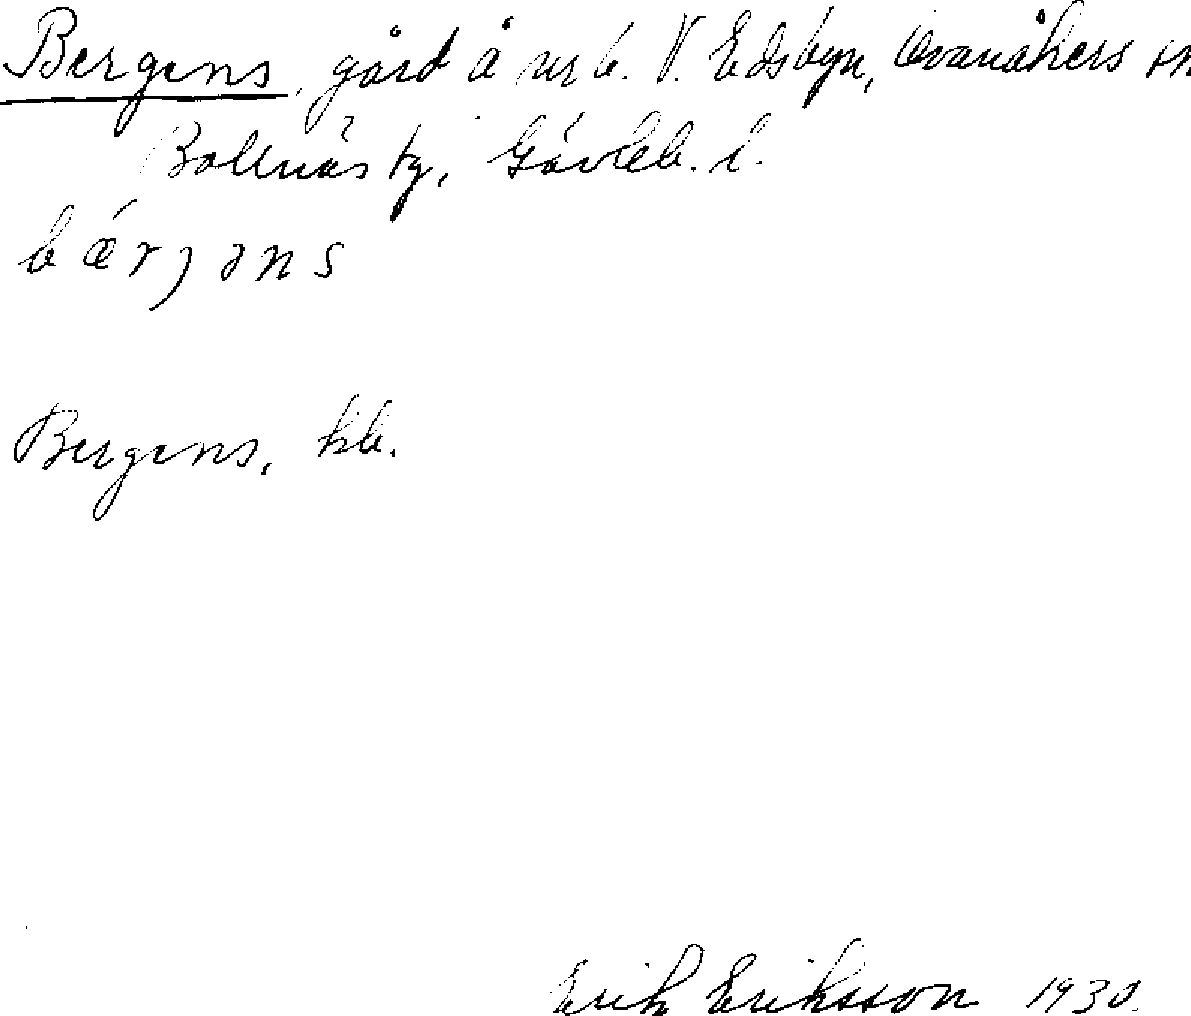 Bergens, gård å nr 6. V. Edsbyn, Ovanåkers sn
Bollnäs tg, Gävleb. l.
bǽrjəns
Bergens, kb.
Erik Eriksson 1930.